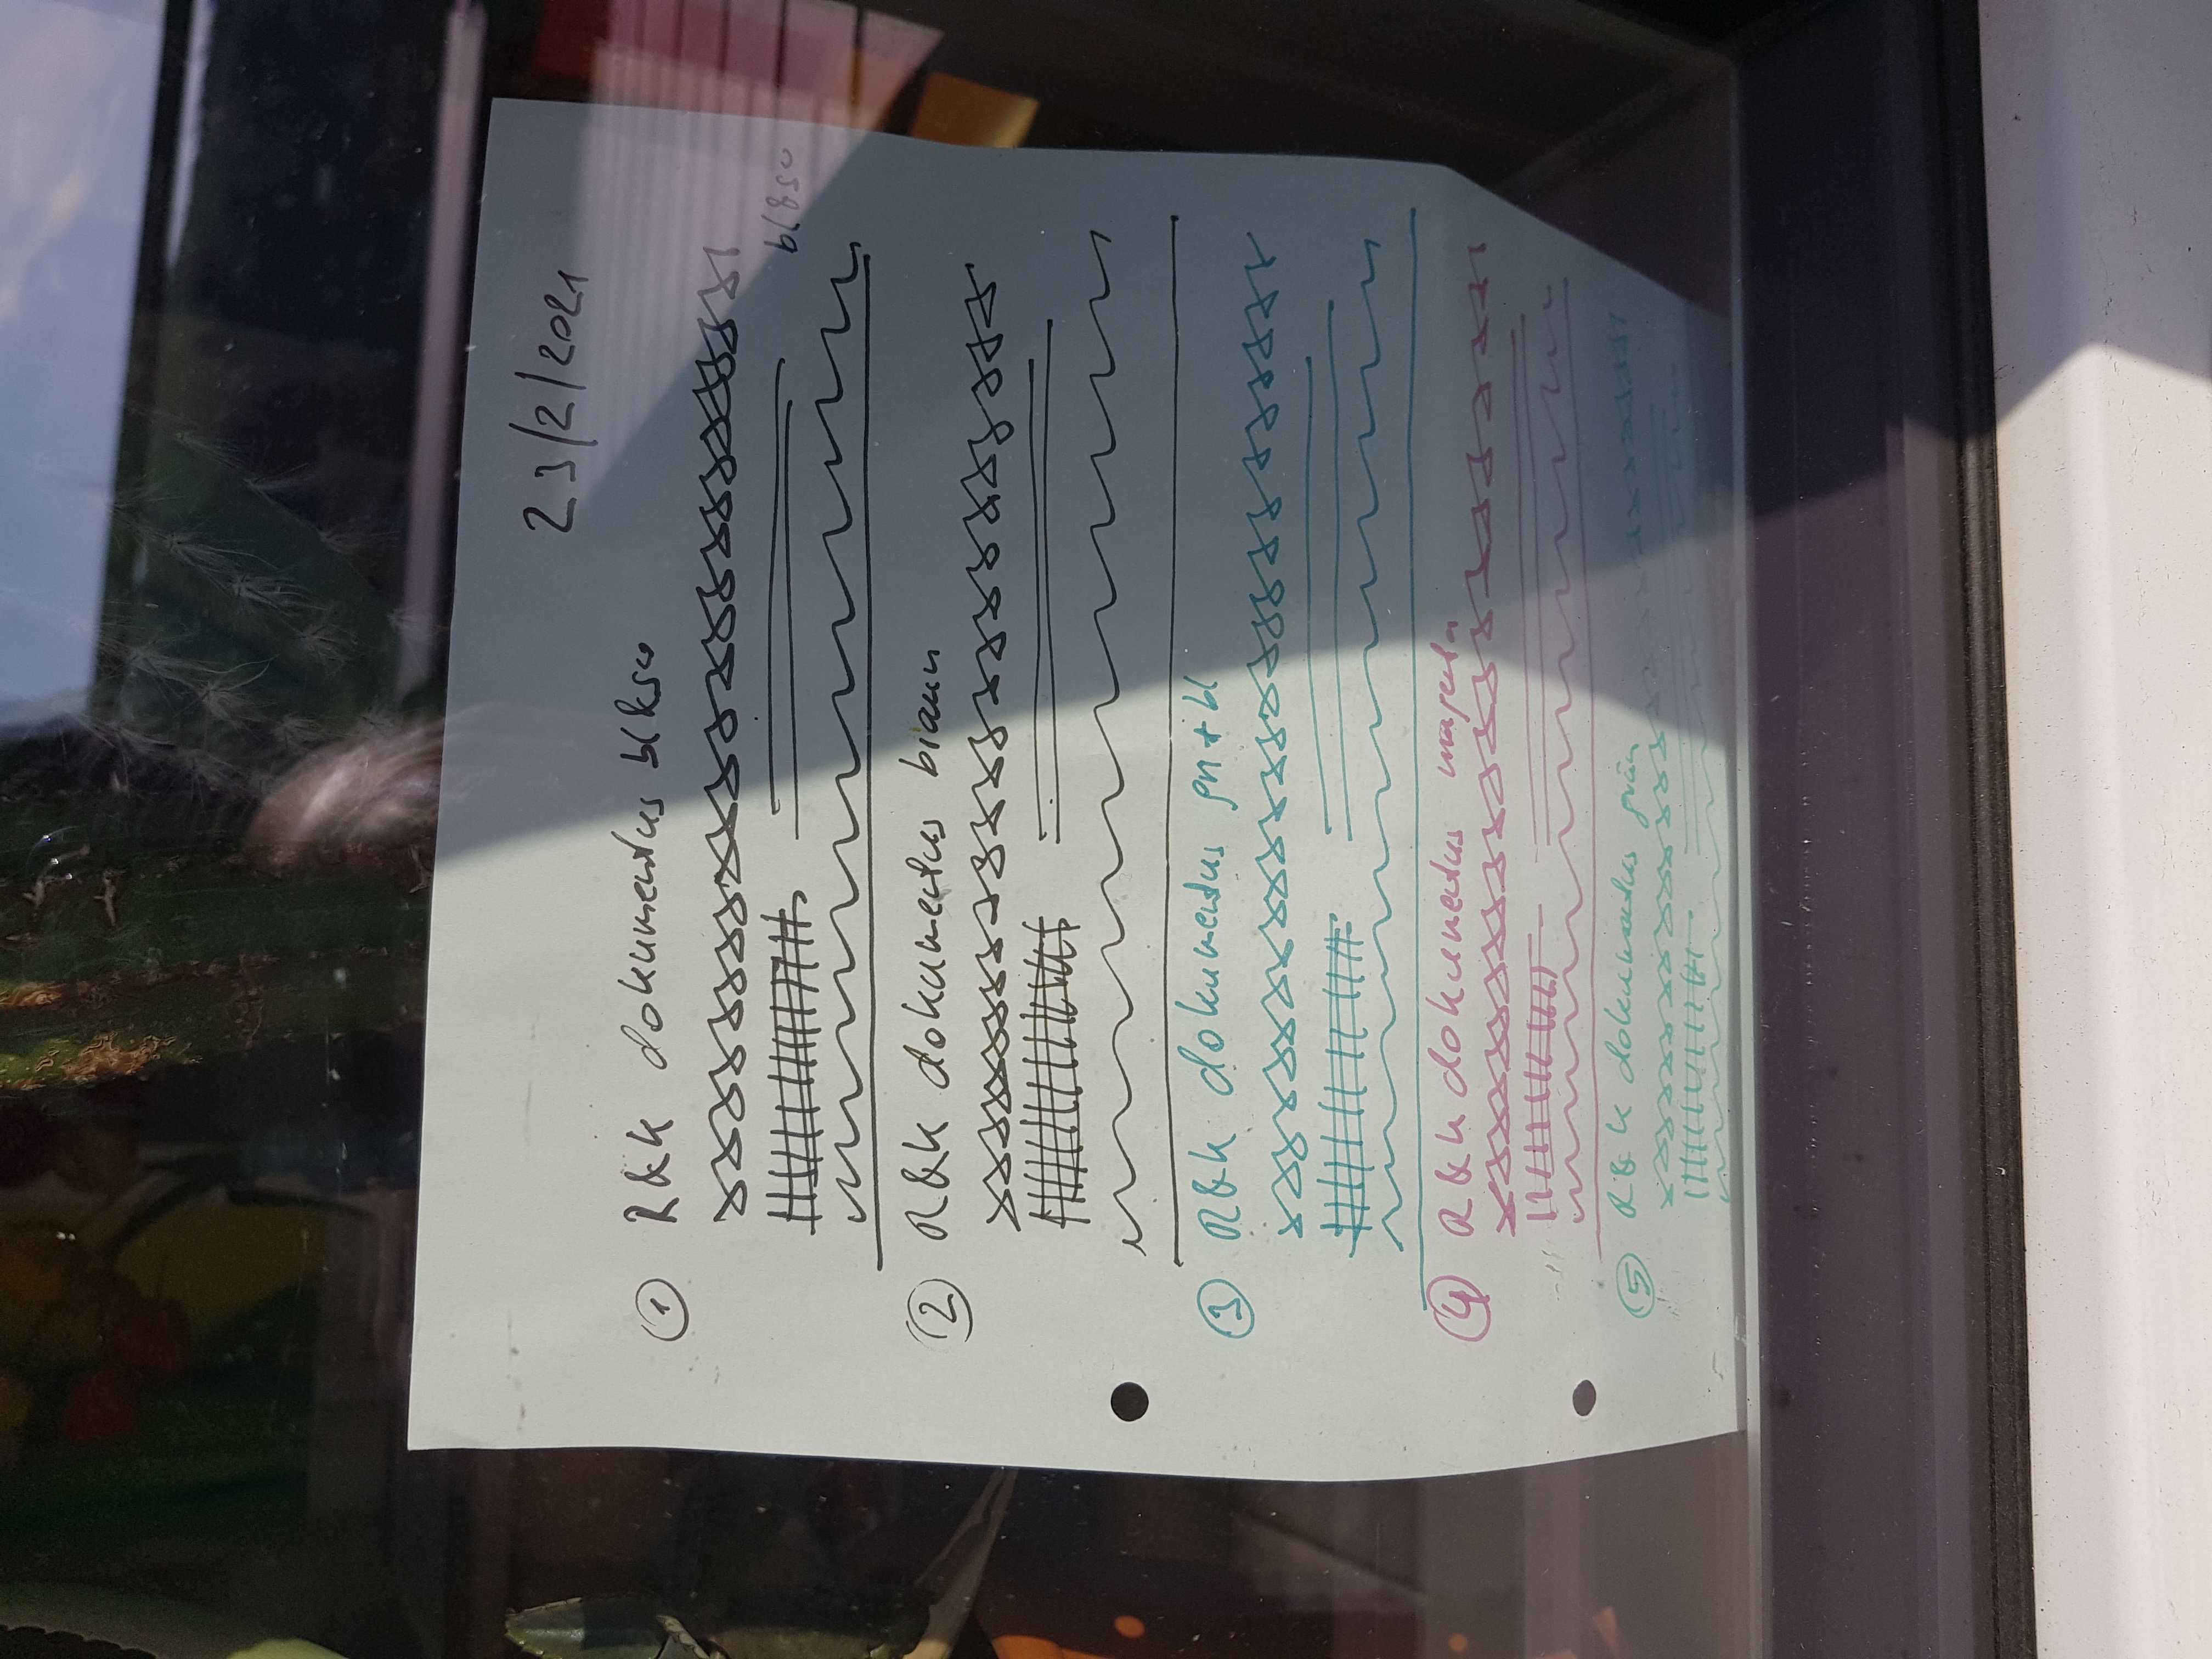 23/2/2021
① R&K dokumentus blksw
bl&sw
② R&K dokumentus braun
③ R&K dokumentus gn+bl
④ R&K dokumentus magenta
⑤ R&K dokumentus grün